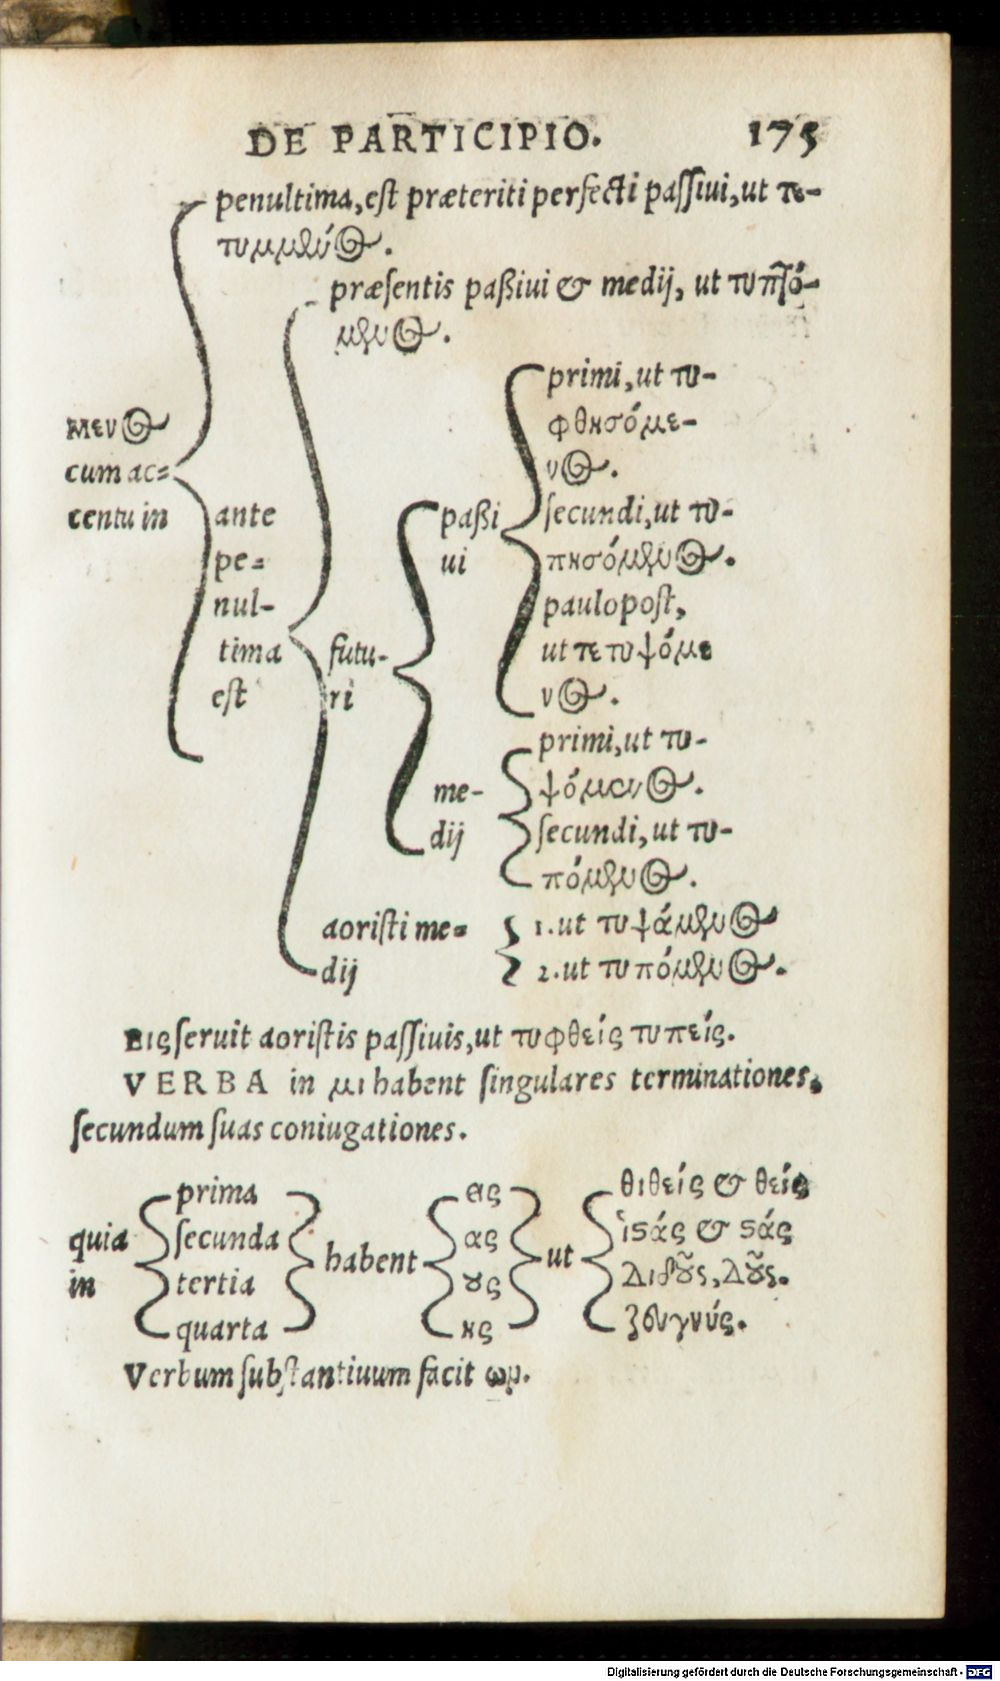 DE PARTICIPIO. 175
penultima, est præteriti perfecti passivi, ut τε-
τυμμένος.
præsentis passiui & medij, ut τυπτό-
μενος.
μενος
cum ac-
centu in
ante
pe-
nul-
tima
est
futu-
ri
passi
ui
primi, ut τυ-
φθησόμε-
νος.
secundi, ut τυ-
πησόμενος.
paulopost,
ut τετυψόμε
νος.
me-
dij
primi, ut τυ-
ψόμενος.
secundi, ut τυ-
πόμενος.
aoristi me-
dij
1. ut τυψάμενος
2. ut τυπόμενος.
εις seruit aoristis passiuis, ut τυφθείς τυπείς.
VERBA in μι habent singulares terminationes,
secundum suas coniugationes.
quia
in
prima
secunda
tertia
quarta
habent
εις
ας
ους
ης
ut
θιθείς & θείς
ἱστάς & στάς
Διδοῦς, Δοῦς.
ζδυγνύς.
Verbum substantiuum facit ων.
Digitalisierung gefördert durch die Deutsche Forschungsgemeinschaft - DFG